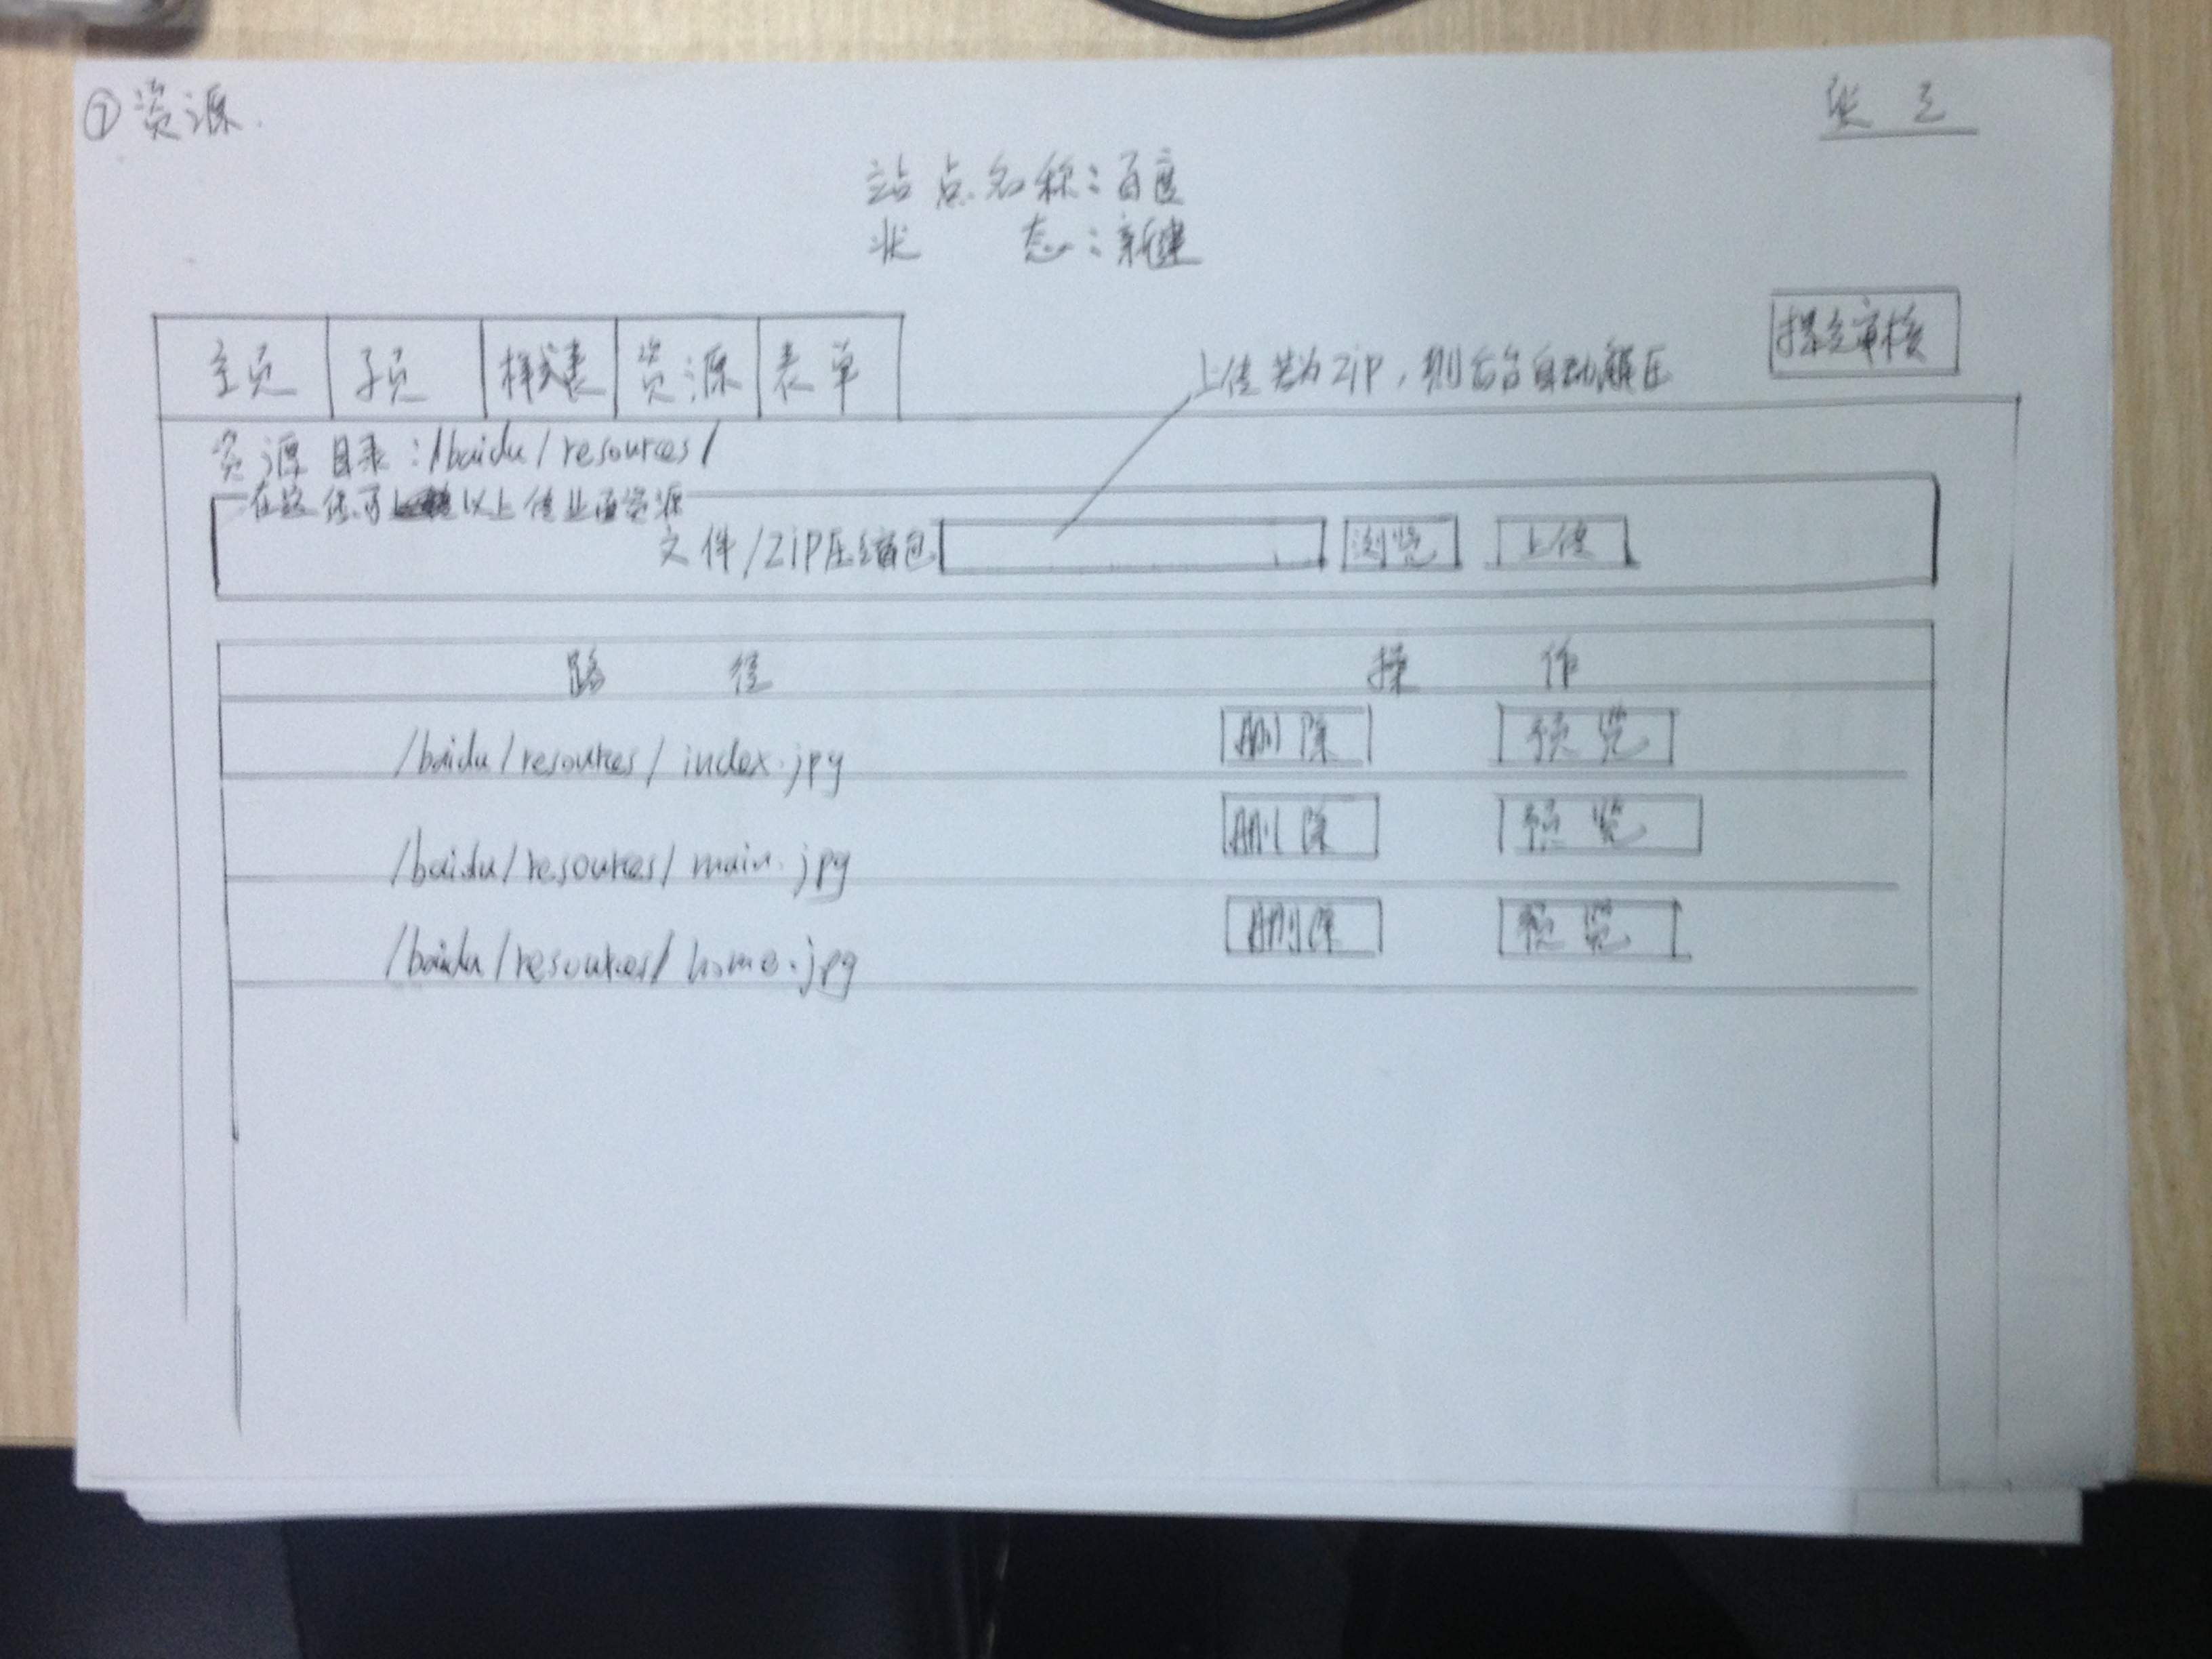 ⑦资源.
张三
站点名称:百度
状 态:新建
提交审核
主页 子页 样式表 资源 表单
上传若为zip,则后台自动解压
资源目录:/baidu/resources/
在这您可以上传业面资源
文件/zip压缩包 浏览 上传
路 径 操 作
/baidu/resources/index.jpg 删除 预览
/baidu/resources/main.jpg 删除 预览
/baidu/resources/home.jpg 删除 预览